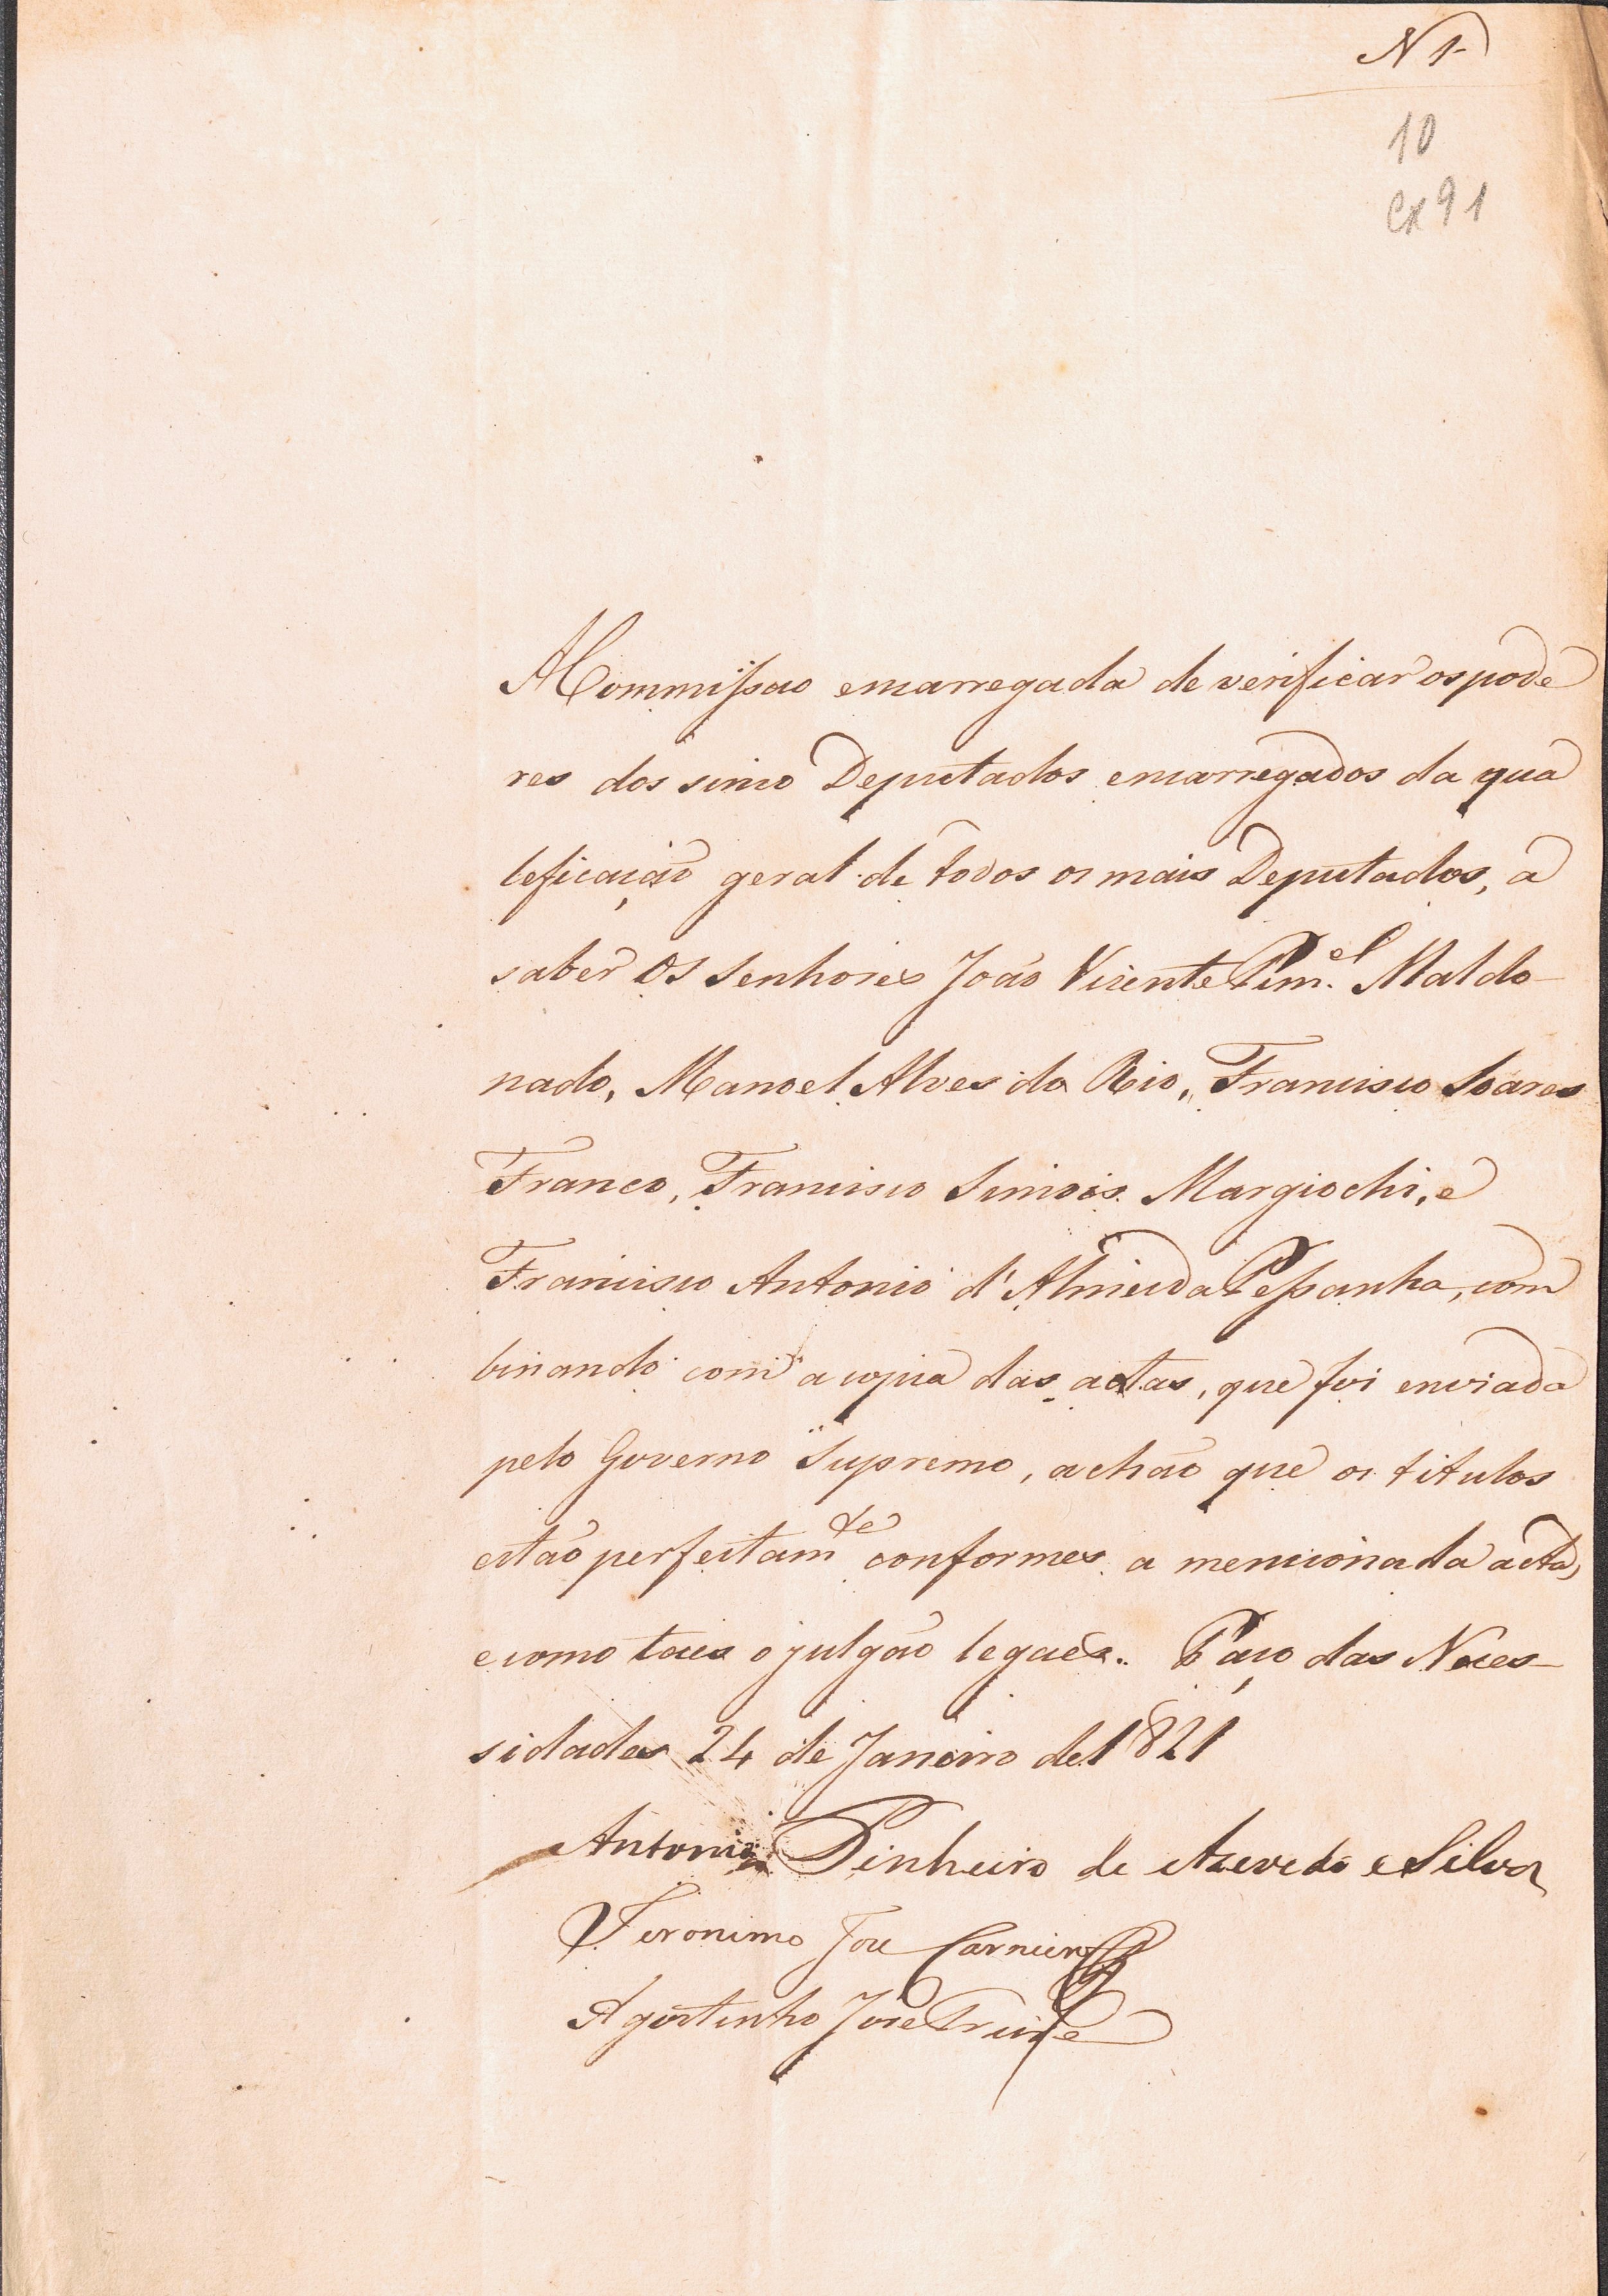 N 1
10
Cx 91
A Commissao encarregada de verificar os pode
res dos sinco Deputados encarregados da qua
leficação geral de todos os mais Deputados, a
saber Os Senhores João Vicente Pim.el Maldo-
nado, Manoel Alves do Rio, Francisco Soares
Franco, Francisco Simois Margiochi, e
Francisco Antonio d'Almeida Pessanha, com
binando com a copia das actas, que foi enviada
pelo Governo Supremo, achão que os titulos
estão perfeitamte conformes a mencionada acta,
e como taes o julgão legaes. Paço das Neces-
sidades 24 de Janeiro de 1821
Antonio Pinheiro de Azevedo e Silva
Jeronimo Joze Carneiro
Agostinho Joze Freire